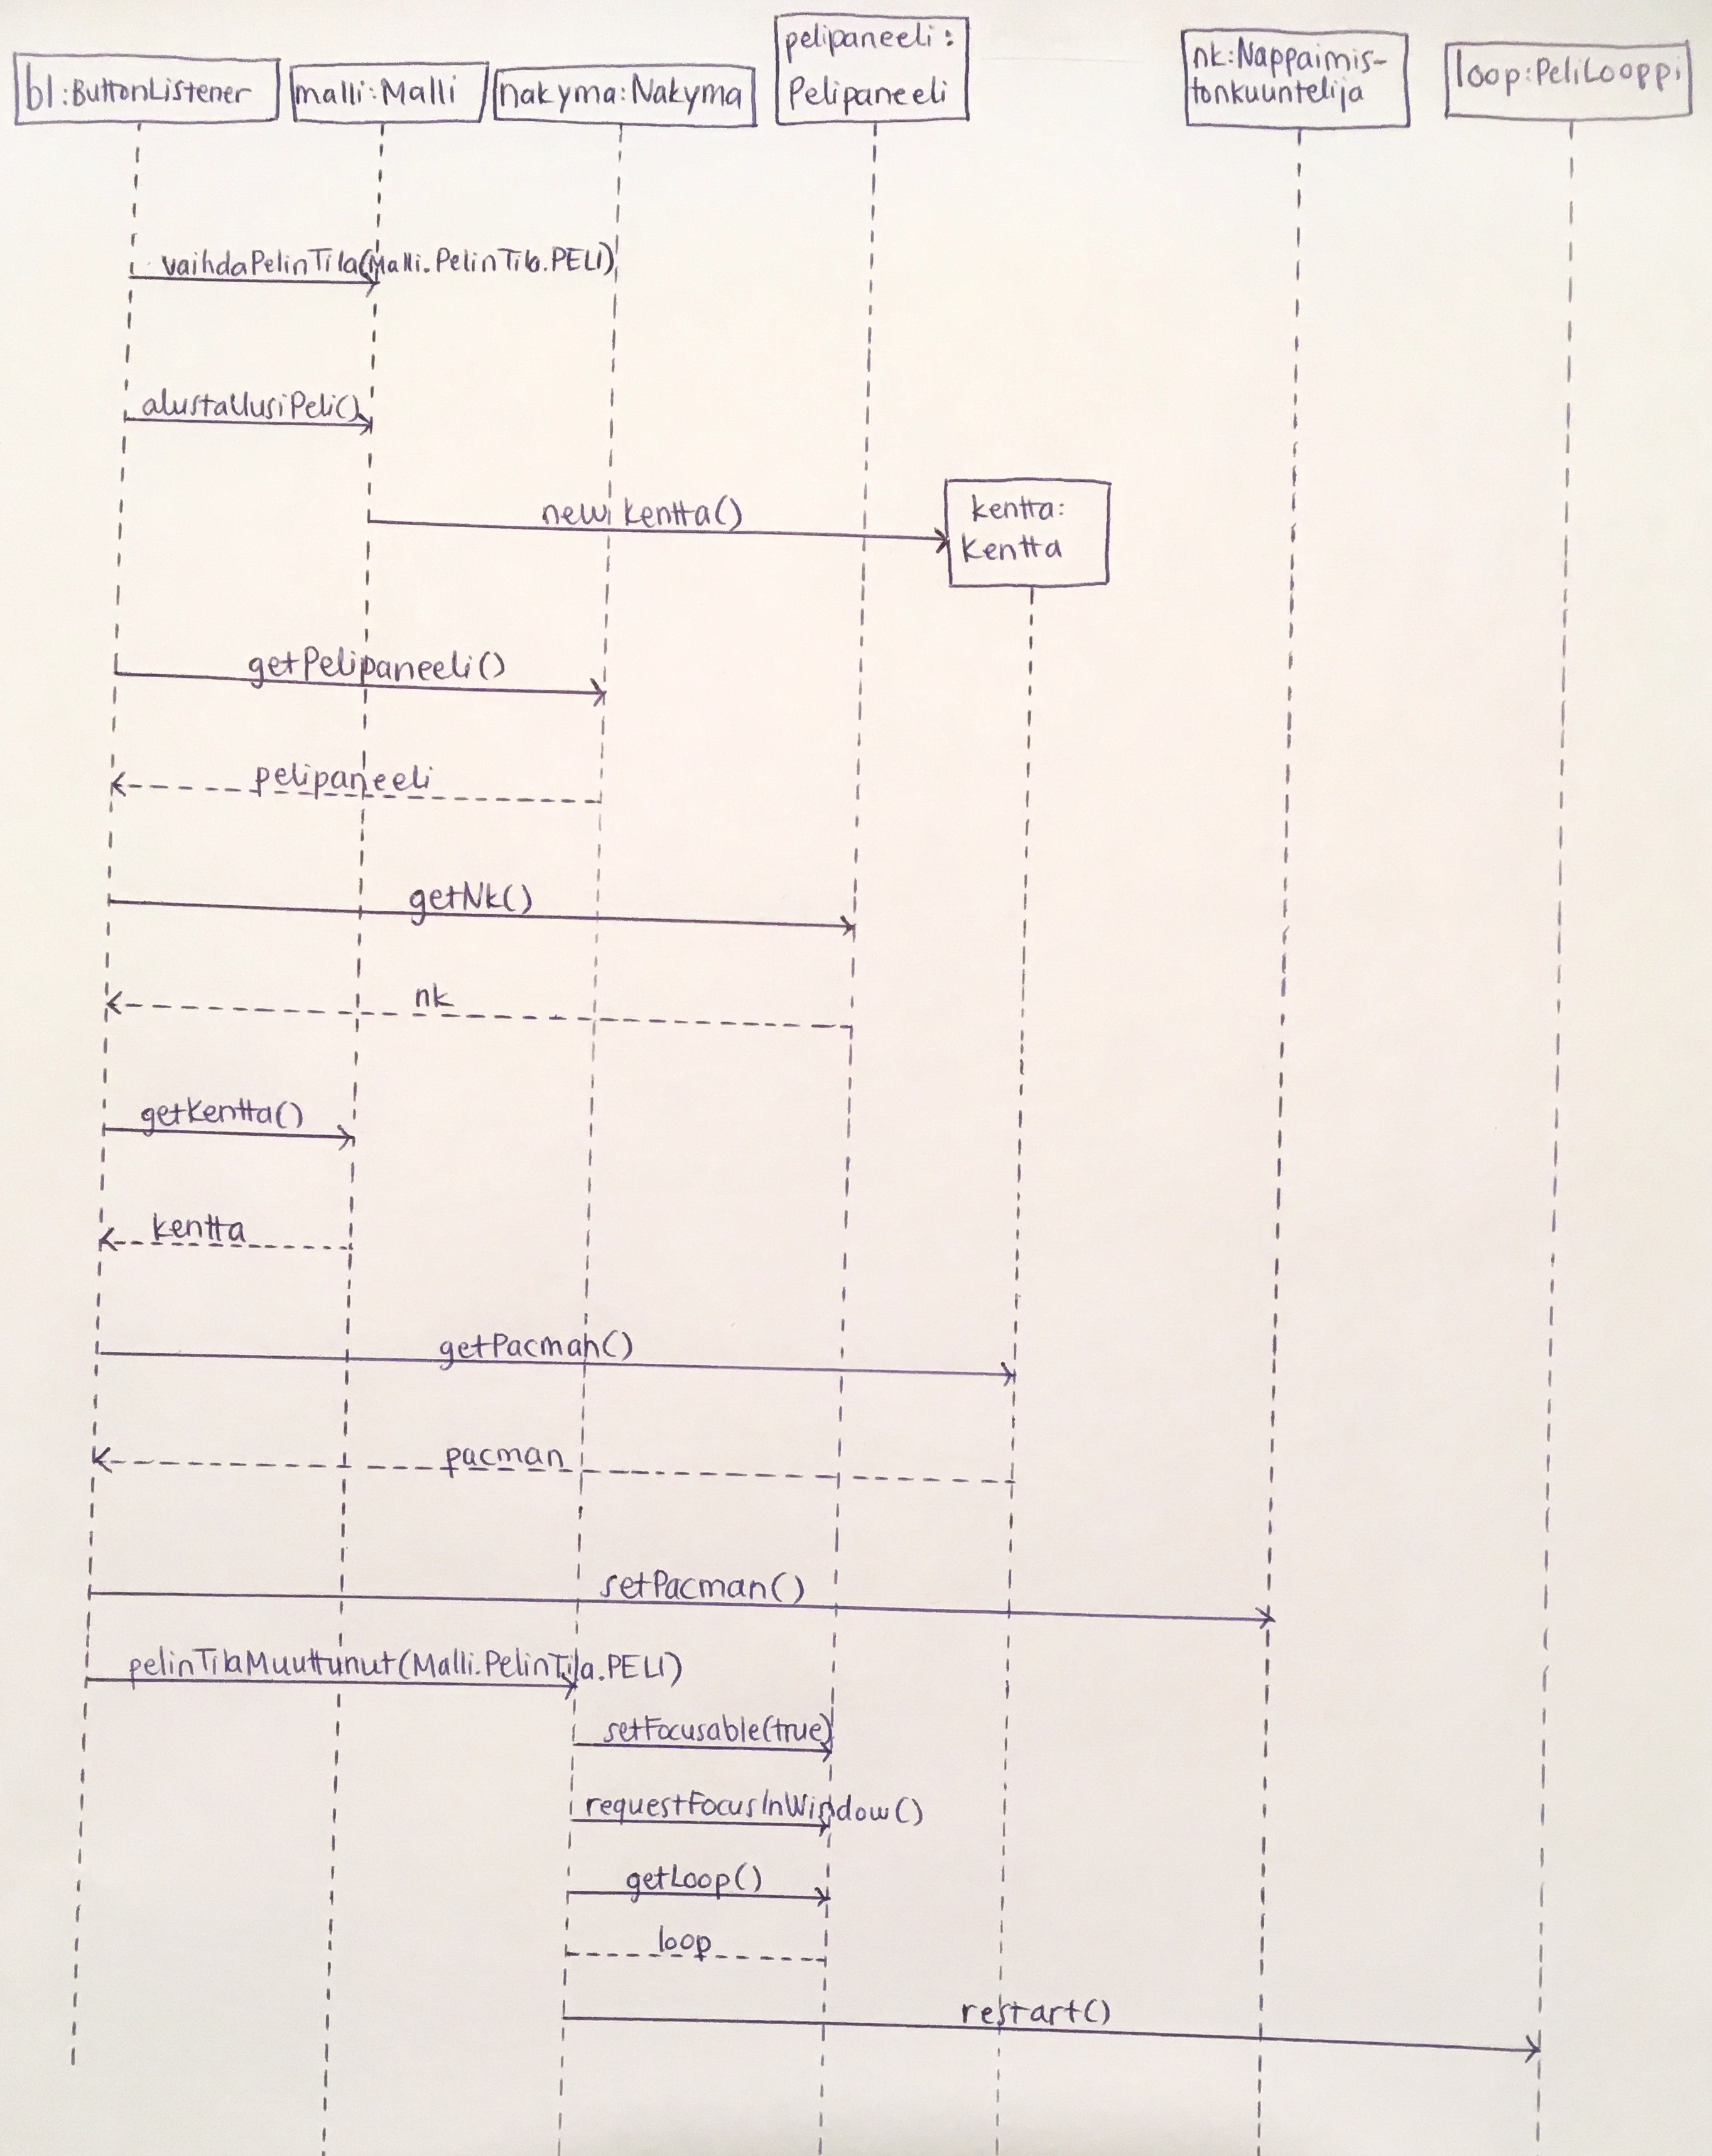 bl:ButtonListener
malli:Malli
nakyma:Nakyma
pelipaneeli:
Pelipaneeli
nk:Nappaimis-
tonkuuntelija
loop:PeliLooppi
vaihdaPelinTila(Malli.PelinTila.PELI)
alustaUusiPeli()
new Kentta()
kentta:
Kentta
getPelipaneeli()
pelipaneeli
getNk()
nk
getKentta()
kentta
getPacman()
pacman
setPacman()
pelinTilaMuuttunut(Malli.PelinTila.PELI)
setFocusable(true)
requestFocusInWindow()
getLoop()
loop
restart()